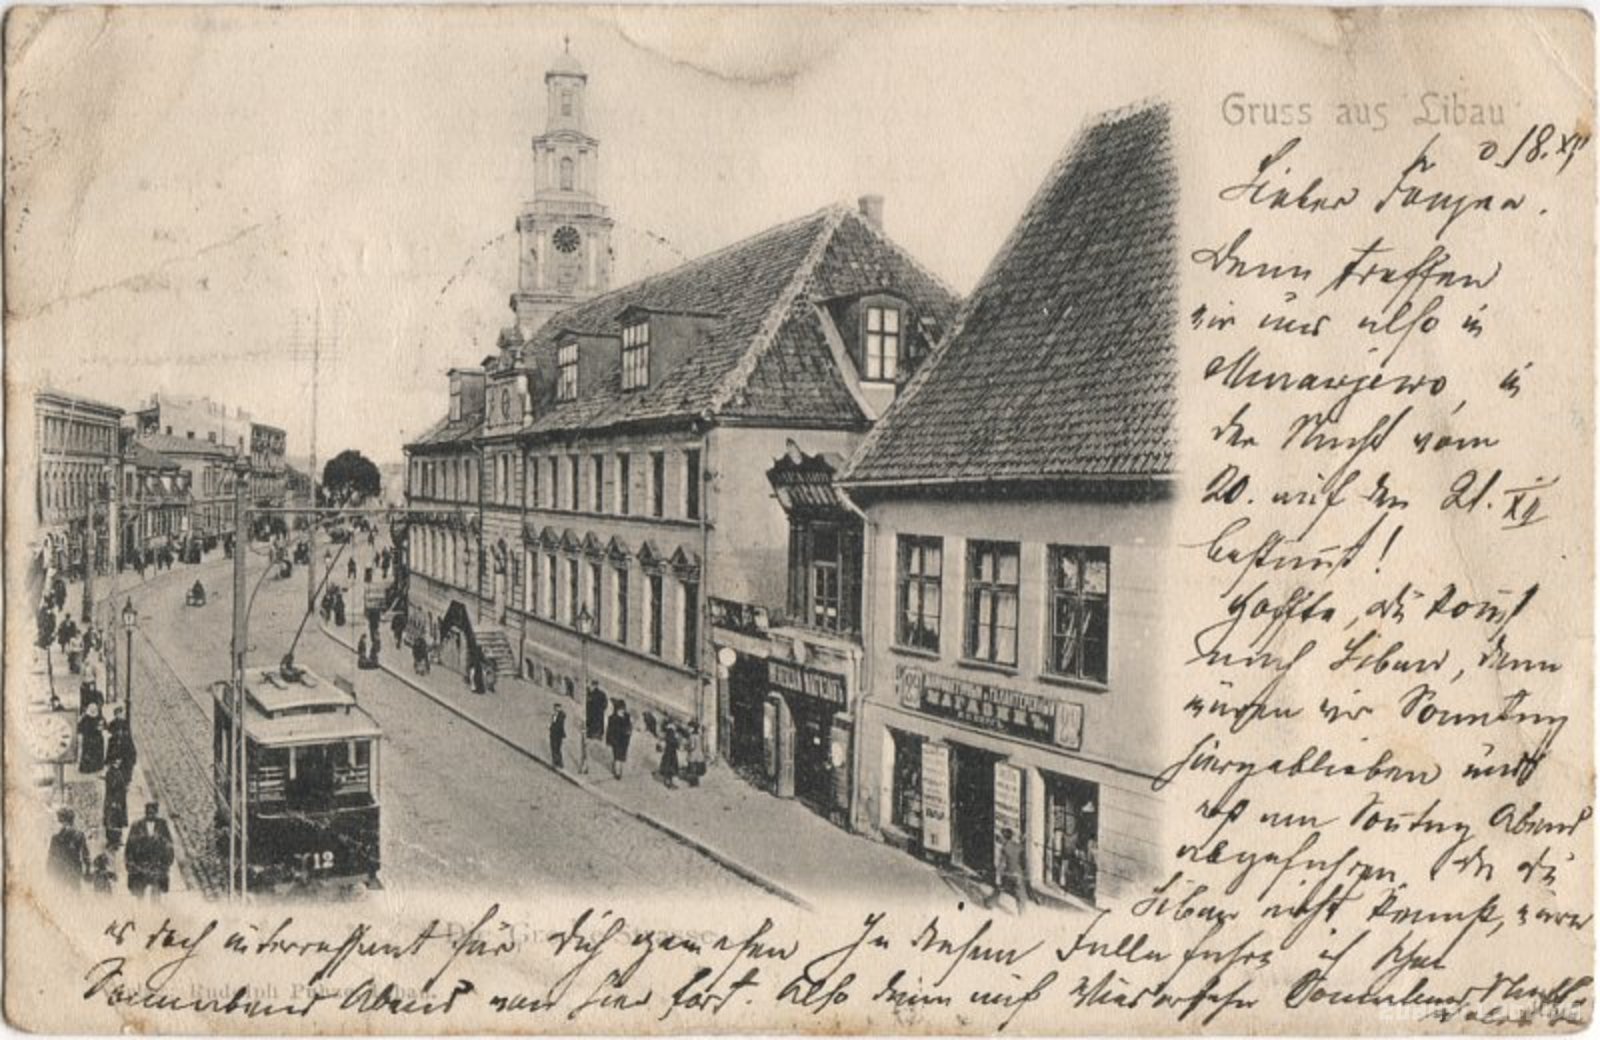 Gruss aus Libau
d. 18. XII
Lieber
Denn treffen
wir uns also in
Murawjewo, in
der Nacht vom
20. auf den 21. XII
bestimmt!
Hoffte, du kommst
nach Libau, dann
wären wir Sonntag
hiergeblieben und
erst am Sonntag Abend
abgefahren. Da du
Libau nicht kennst, wäre
es doch interressant für Dich gewesen In diesem Falle fahre ich schon
Sonnabend Abend von hier fort. Also denn auf Wiedersehn Sonnabend Nacht.
Die Grosse Strasse
Rudolph Puhze, Libau.
12